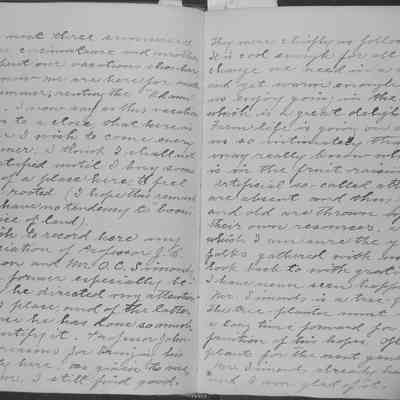 next three summers
circumstance and another
spent our vacations elsewhere
now we are here for another
summer, renting the "Adams"
. I now say as this vacation
to a close, that here is
I wish to come every
summer; I think I shall not
satisfied until I buy some
of a place here, & feel
rooted. (I hope this remark
have no tendency to boom
price of land).
wish to record here my
Professor J. C.
son and Mr. O. C. Simonds,
former especially be-
he directed my attention
place, and of the latter
he has done so much
beautify it. Professor John-
reasons for having his
here, as given to me,
me, I still find good.
They were chiefly as follows:
It is cool enough for all
change we need in a
and yet warm enough
us enjoy going in the
which is a great delight.
Farm life is going on a
us so intimately that
may really know what
is in the fruit raising
artificial so-called
are absent and thus
and old are thrown
their own resources,
which I am sure the
folks gathered with
look back to with grati
I have never seen happi
Mr. Simonds is a tree
The tree planter must
a long time forward for
of his hopes. Oft
plant for the next gene
Mr. Simonds already has
and I am glad of it.